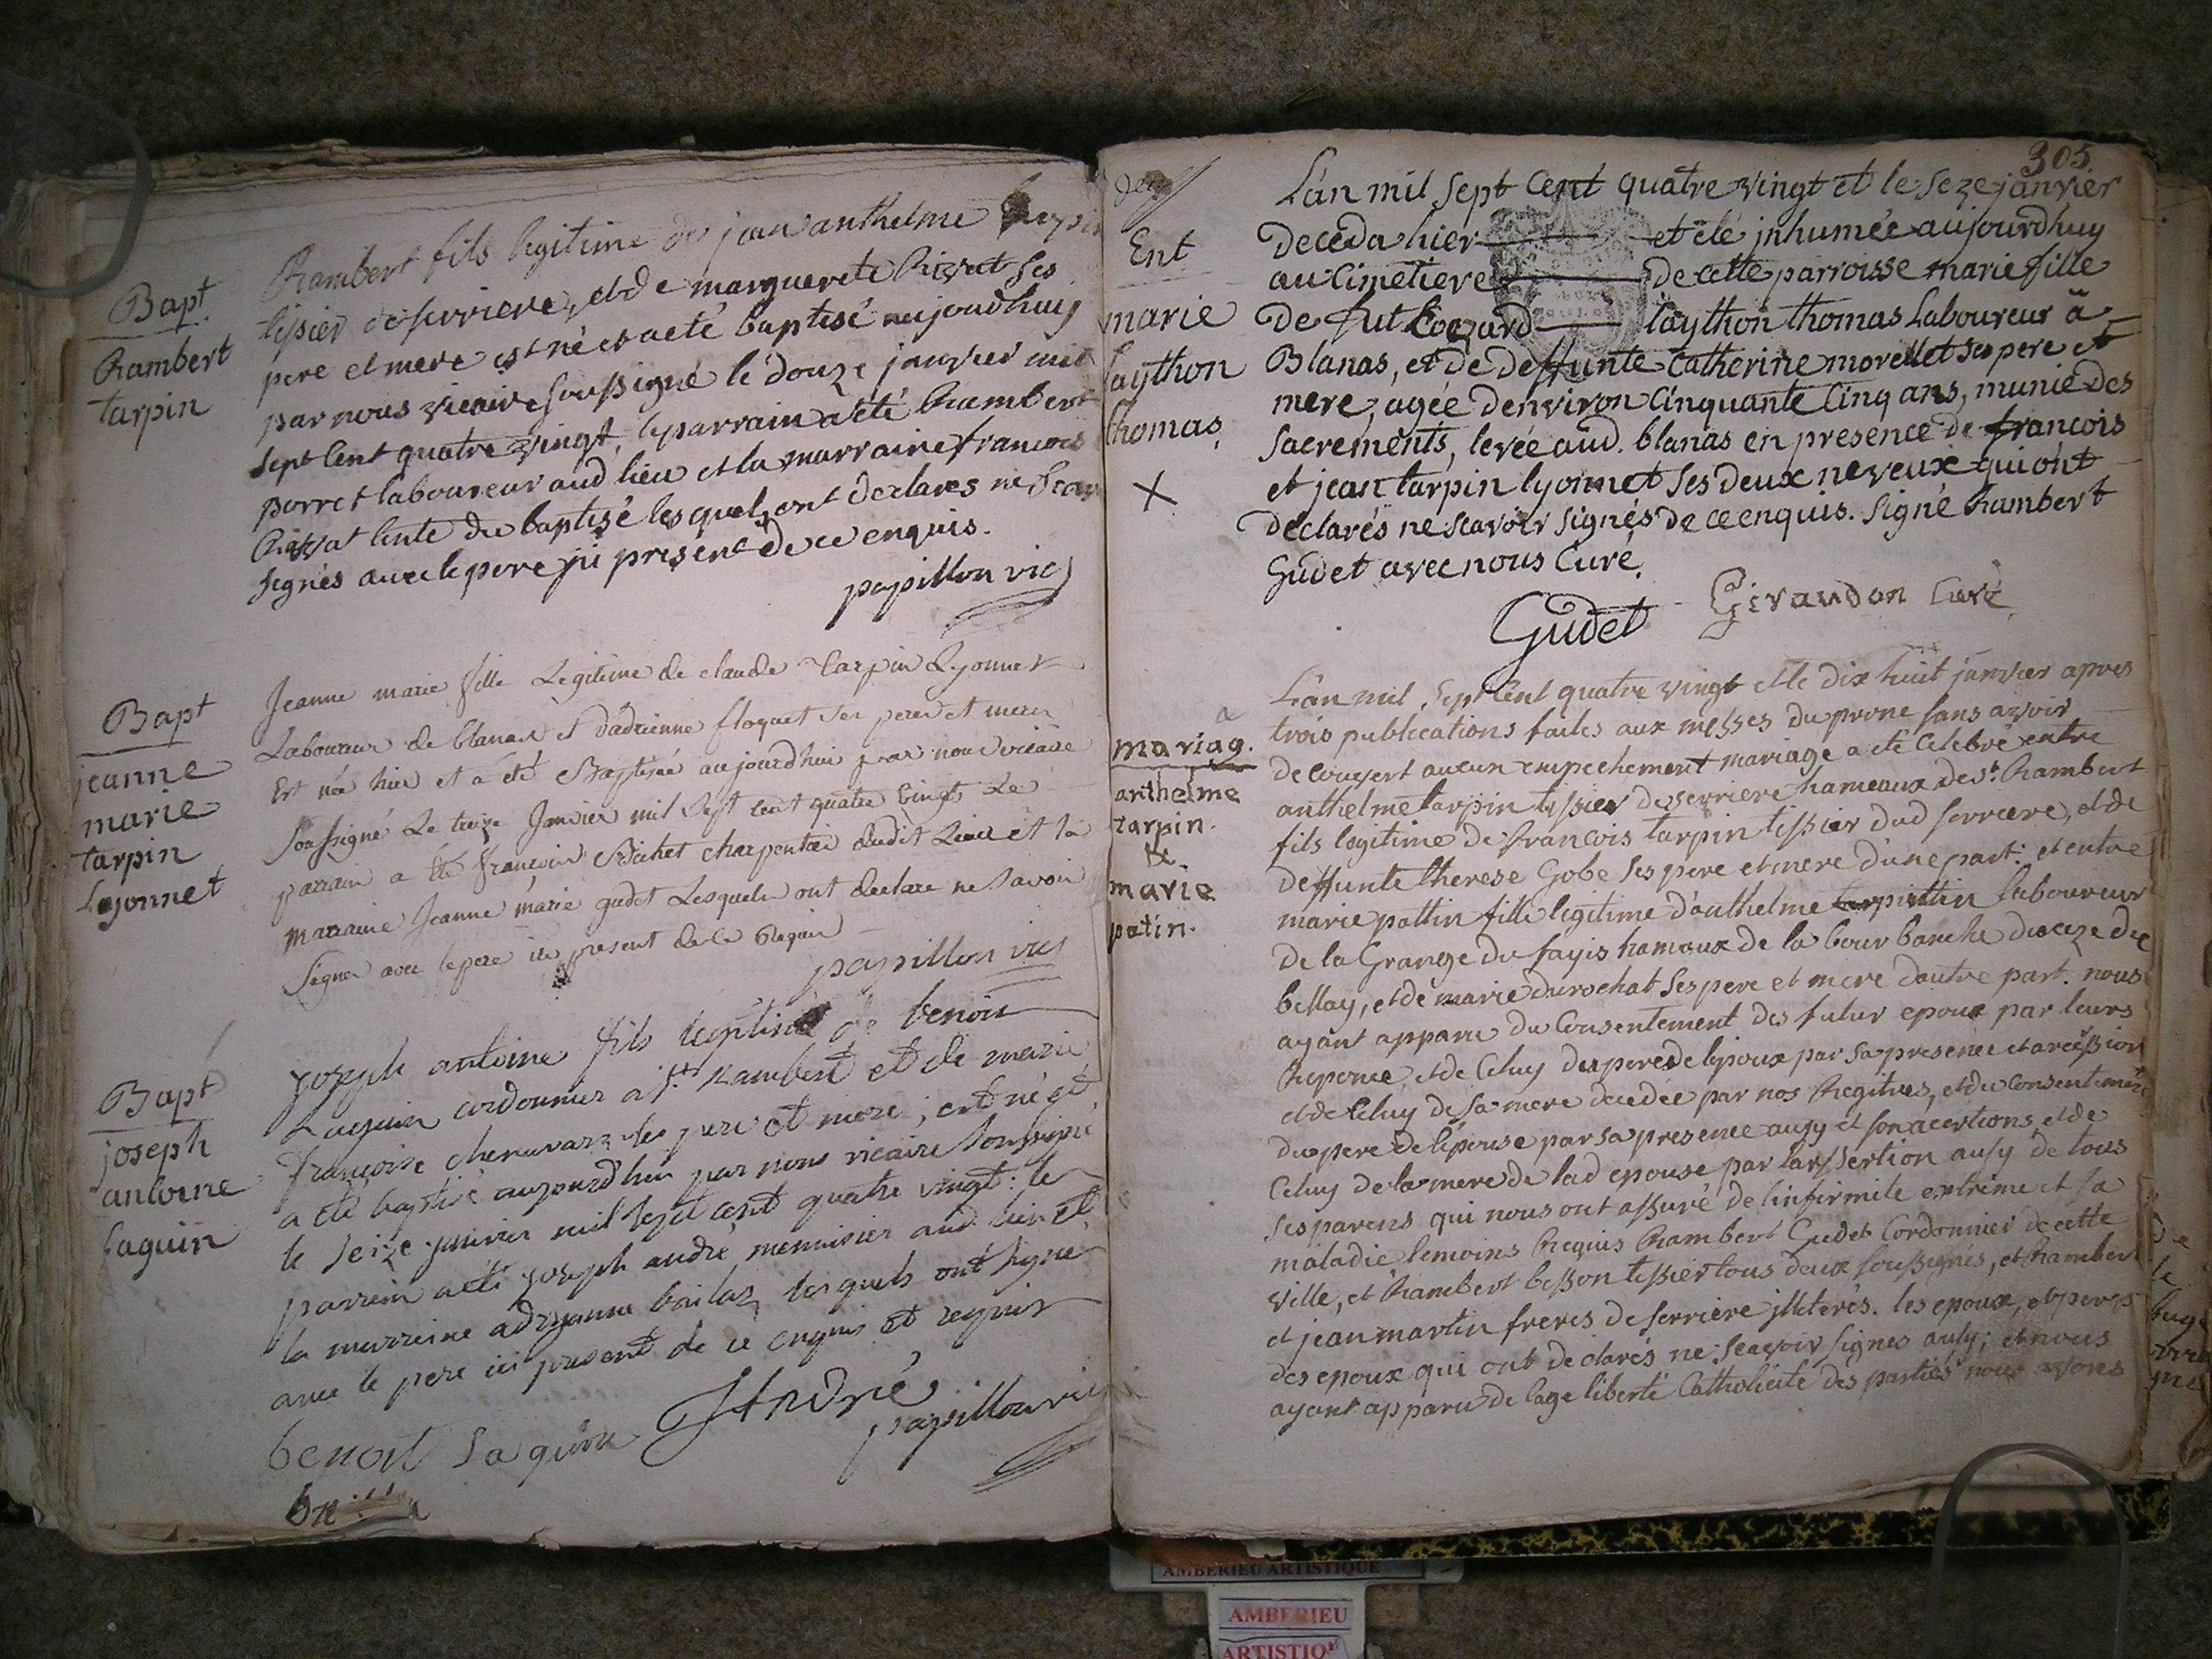 Bapt
Rambert
tarpin
Rambert fils legitime de jean anthelme
tissier de serriere, et de marguerete Rivat ses
pere et mere est né et a eté baptisé aujourdhuy
par nous vicaire soussigné le douze janvier mil
sept cent quatre vingt, le parrain a été Rambert
porret laboureur aud lieu et la marraine francoise
Rivat tente du baptisé lesquels ont declarés ne scav
signés avec le pere ici présent de ce enquis.
papillon vic
Bapt
jeanne
marie
tarpin
Lyonnet
Jeanne marie fille Legitime de claude tarpin Lyonnet
Laboureur de blanas et d'adrienne floquet ses pere et mere
Est née hier et a été Baptisée aujourd'hui par nous vicaire
Soussigné Le treize Janvier mil Sept cent quatre vingt Le
parrain a été françois Bichet charpentier dudit Lieu et la
marraine Jeanne marie gudet Lesquels ont declare ne Savoir
Signer avec le pere ici present de ce Requis
papillon vic
Bapt
joseph
antoine
laguin
joseph antoine fils legitime de benoit
Laguin cordonnier a St Rambert et de marie
françoise chenavaz ses pere et mere; est né et
a été baptisé aujourd'hui par nous vicaire soussigné
le seize janvier mil sept cent quatre vingt: le
parrein a été joseph andré mennisier aud. lieu et
la marreine adryanne bailaz lesquels ont signe
avec le pere ici present de ce enquis et requis
JAndré
benoit laguin
papillon vic
305
Ent
marie
laython
thomas
X
L'an mil sept cent quatre vingt et le seze janvier
deceda hier et eté jnhumée aujourdhuy
au Cimetiere de cette parroisse marie fille
de fut laython thomas Laboureur à
Blanas, et de deffunte Catherine morellet ses pere et
mere, agée denviron Cinquante Cinq ans, munie des
sacrements, levée aud. blanas en presence de francois
et jean tarpin lyonnet ses deux neveux qui ont
déclarés ne scavoir signés de ce enquis. Signé Rambert
Gudet avec nous Curé.
Gudet Giraudon Curé
mariag.
anthelme
tarpin.
&
marie
patin.
L'an mil sept Cent quatre vingt et le dix huit janvier apres
trois publications faites aux messes du prone sans avoir
decouvert aucun empechement mariage a eté Celebré entre
anthelme tarpin tissier de serriere hameaux de St. Rambert
fils legitime de francois tarpin tissier dud serriere, et de
deffunte therese Gobe ses pere et mere d'une part: et entre
marie pattin fille legitime d'anthelme pattin laboureur
de la Grange du fayis hamaux de la bour banche dioceze du
bellay, et de marie durochat ses pere et mere dautre part. nous
ayant apparu du Consentement des futur epoux par leurs
Reponce, et de Celuy du pere de lepoux par sa presence et acession
et de Celuy de sa mere decedée par nos Regitres, et du Consentement
du pere de l'épouse par sa presence ausy et son acertions, et de
Celuy de la mere de lad epouse par lassertion ausy de tous
ses parens qui nous ont assuré de linfirmite extrême et sa
maladie temoins Requis Rambert Gudet Cordonnier de cette
ville, et Rambert besson tissier tous deux soussignés, et Rambert
et jean martin freres de serriere jlliterés. les epoux, et peres
des epoux qui ont declarés ne scavoir signes ausy; et nous
ayant apparu de lage liberté Catholicité des parties nous avons
AMBERIEU ARTISTIQUE
AMBERIEU